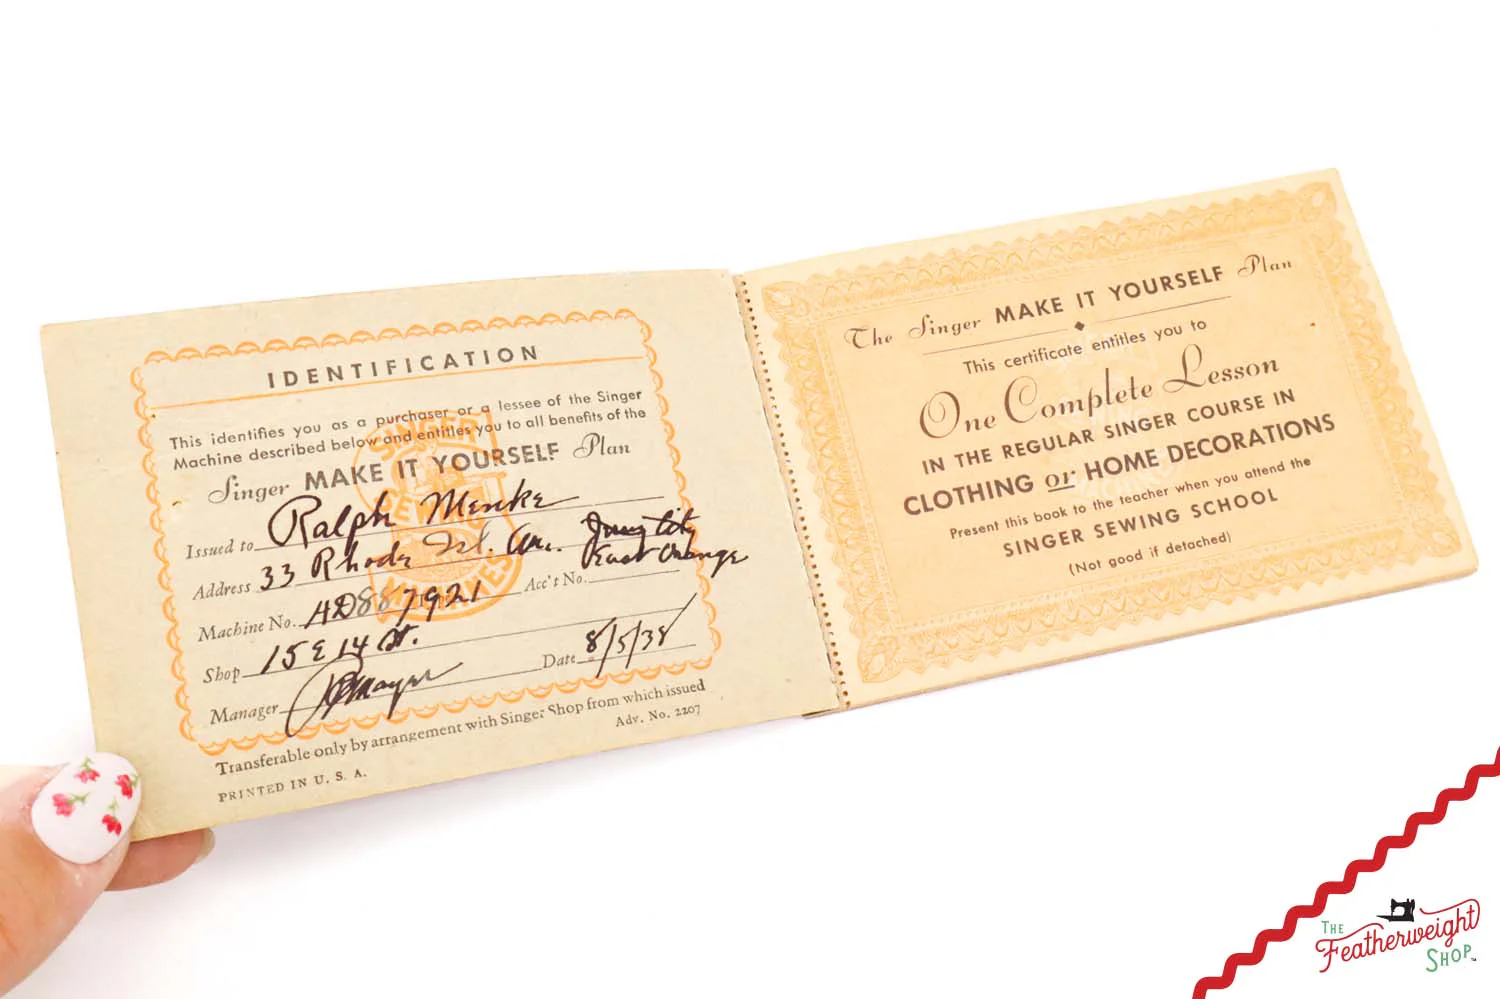 IDENTIFICATION
This identifies you as a purchaser or a lessee of the Singer
Machine described below and entitles you to all benefits of the
Singer MAKE IT YOURSELF Plan
Issued to Ralph Menke
Address 33 Rhode Isl. Ave. East Orange
Machine No. AD887921 Acc't No.
Shop 15 E 14 St.
Manager Date 8/5/38
Transferable only by arrangement with Singer Shop from which issued
Adv. No. 2207
PRINTED IN U. S. A.
The Singer MAKE IT YOURSELF Plan
This certificate entitles you to
One Complete Lesson
IN THE REGULAR SINGER COURSE IN
CLOTHING or HOME DECORATIONS
Present this book to the teacher when you attend the
SINGER SEWING SCHOOL
(Not good if detached)
THE
Featherweight
SHOP